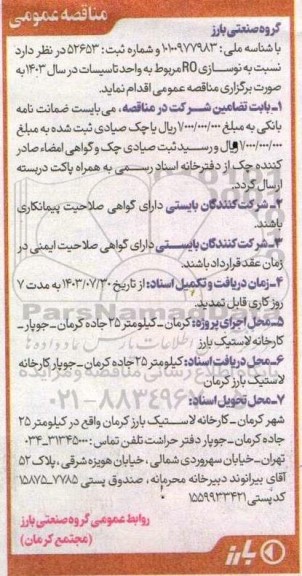 مناقصه عمومی
گروه صنعتی بارز
با شناسه ملی : ۱۰۱۰۰۹۷۷۹۸۳ و شماره ثبت : ۵۲۶۵۳ در نظر دارد
نسبت به نوسازی RO مربوط به واحد تاسیسات در سال ۱۴۰۳ به
صورت برگزاری مناقصه عمومی اقدام نماید.
۱_بابت تضامین شرکت در مناقصه، می‌بایست ضمانت نامه
بانکی به مبلغ ۷/۰۰۰/۰۰۰/۰۰۰ ریال یا چک صیادی ثبت شده به مبلغ
۷/۰۰۰/۰۰۰/۰۰۰ ریال و رسید ثبت صیادی چک و گواهی امضاء صادر
کننده چک از دفترخانه اسناد رسمی به همراه پاکت دربسته
ارسال گردد.
۲_شرکت‌کنندگان بایستی دارای گواهی صلاحیت پیمانکاری
باشند.
۳_شرکت‌کنندگان بایستی دارای گواهی صلاحیت ایمنی در
زمان عقد قرارداد باشند.
۴_زمان دریافت و تکمیل اسناد: از تاریخ ۱۴۰۳/۰۷/۳۰ به مدت ۷
روز کاری قابل تمدید.
۵_محل اجرای پروژه: کرمان _ کیلومتر ۲۵ جاده کرمان _ جوپار _
کارخانه لاستیک بارز
۶_محل دریافت اسناد: کیلومتر ۲۵ جاده کرمان _ جوپار کارخانه
لاستیک بارز کرمان
۷_محل تحویل اسناد:
شهر کرمان _ کارخانه لاستیک بارز کرمان واقع در کیلومتر ۲۵
جاده کرمان _ جوپار دفتر حراشت تلفن تماس : ۳۱۳۴۵۰۰۰-۰۳۴
تهران _ خیابان سهروردی شمالی ، خیابان هویزه شرقی ، پلاک ۵۲
آقای بیرانوند دبیرخانه محرمانه ، صندوق پستی ۷۷۸۵_۱۵۸۷۵
کد پستی ۱۵۵۹۹۳۳۴۲۱
روابط عمومی گروه صنعتی بارز
(مجتمع کرمان)
بارز
ParsNamadData
۰۲۱-۸۸۳۴۹۶